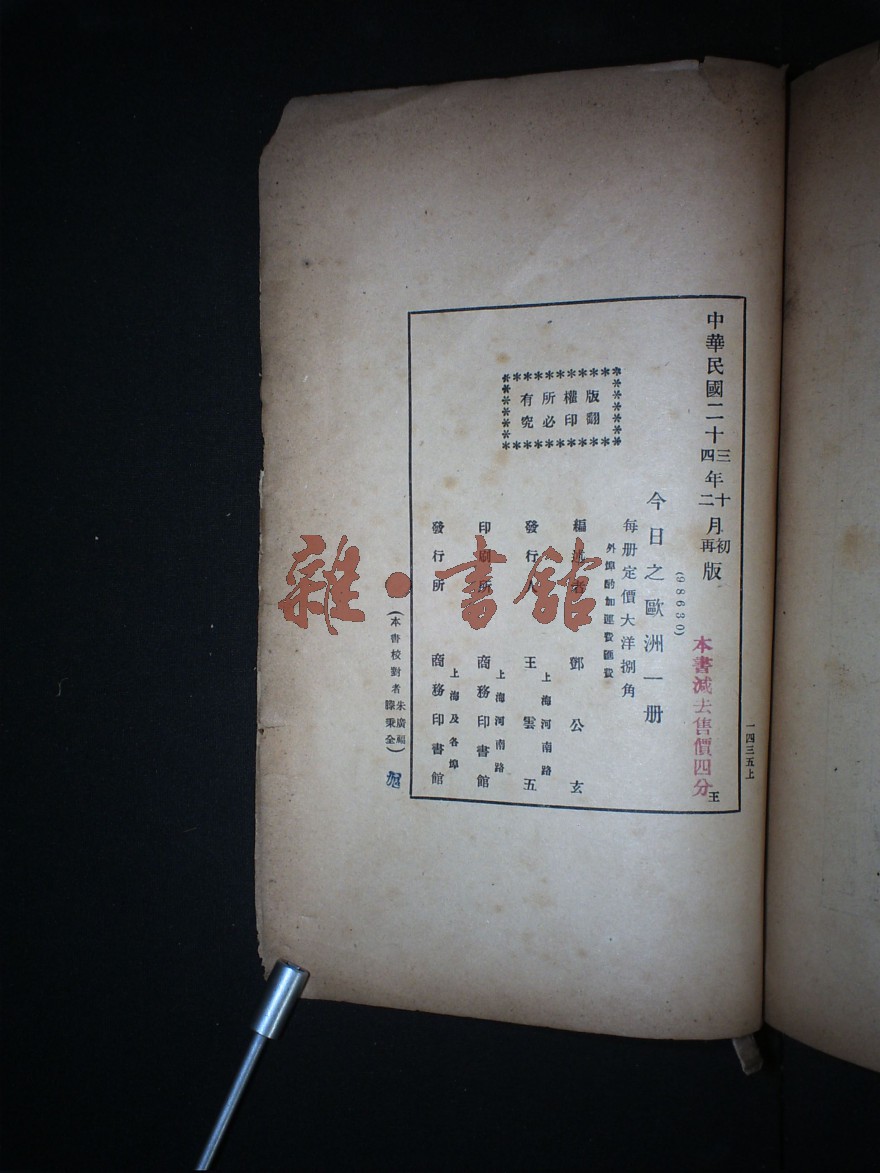 中華民國二十三年十月初版
四 二 再
本書減去售價四分
王
一四三五上
(98630)
今日之歐洲一册
每册定價大洋捌角
外埠酌加運費匯費
版權所有
翻印必究
編述者 鄧公玄
上海河南路
發行人 王雲五
上海河南路
印刷所 商務印書館
上海及各埠
發行所 商務印書館
(本書校對者朱廣福
滕秉全)
雜·書館